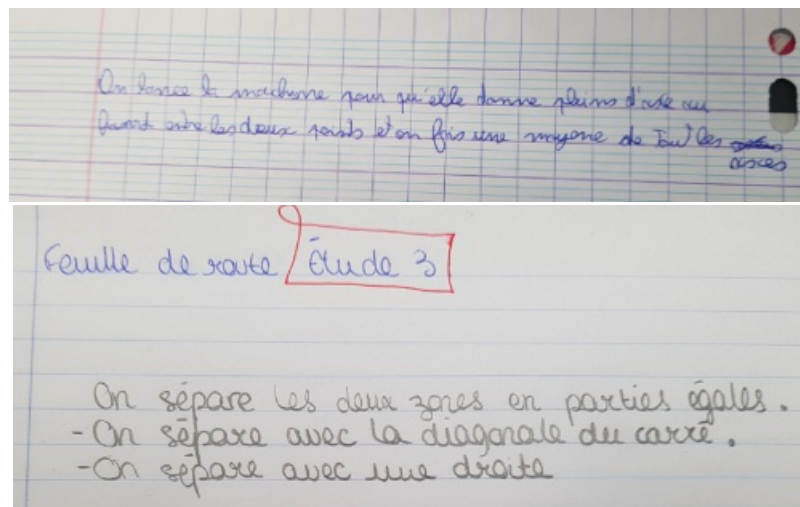 On lance la machine pour qu'elle donne pleins d'axe au
hasard entre les deux points et on fais une moyene de Tout les
axes
Feuille de route Étude 3
On sépare les deux zones en parties égales.
-On sépare avec la diagonale du carré.
-On sépare avec une droite